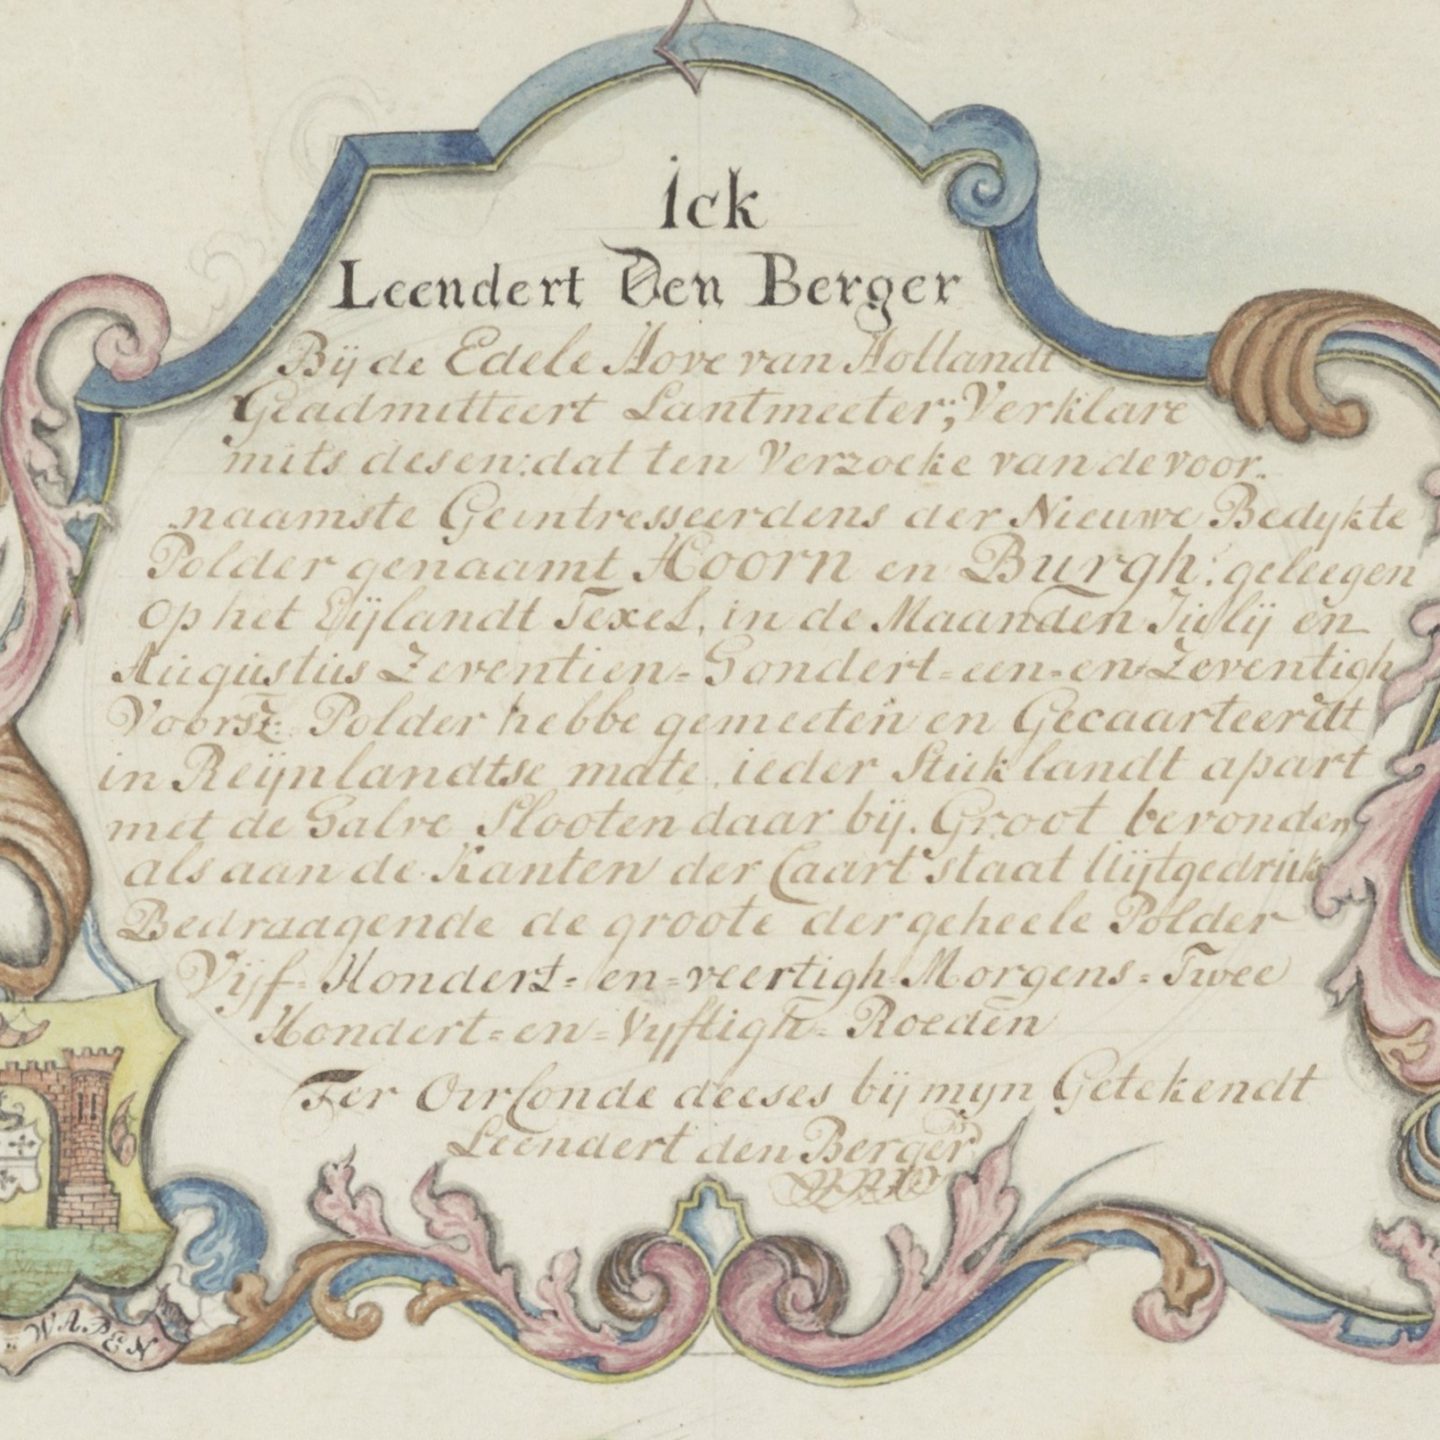 ick
Leendert Den Berger
Bij de Edele Hove van Hollandt
Geadmitteert Lantmeeter; Verklare
mits desen: dat ten Verzoeke van de voor..
naamste Geintresseerdens der Nieuwe Bedykte
Polder genaamt Hoorn en Burgh: geleegen
op het Eijlandt Texel, in de Maanden Iulij en
Augustus Zeventien=Hondert=een=en=Zeventigh
Voorsz: Polder hebbe gemeeten en Gecaarteerdt
in Reijnlandtse mate, ieder Stuk landt apart
met de Halve Slooten daar bij. Groot bevonden
als aan de Kanten der Caart staat Uijtgedrukt
Bedraagende de groote der geheele Polder
Vijf=Hondert=en=veertigh Morgens=Twee
Hondert=en=Vyfftigh=Roeden
Ter Oirconde deeses bij myn Getekendt
Leendert den Berger
WAPEN